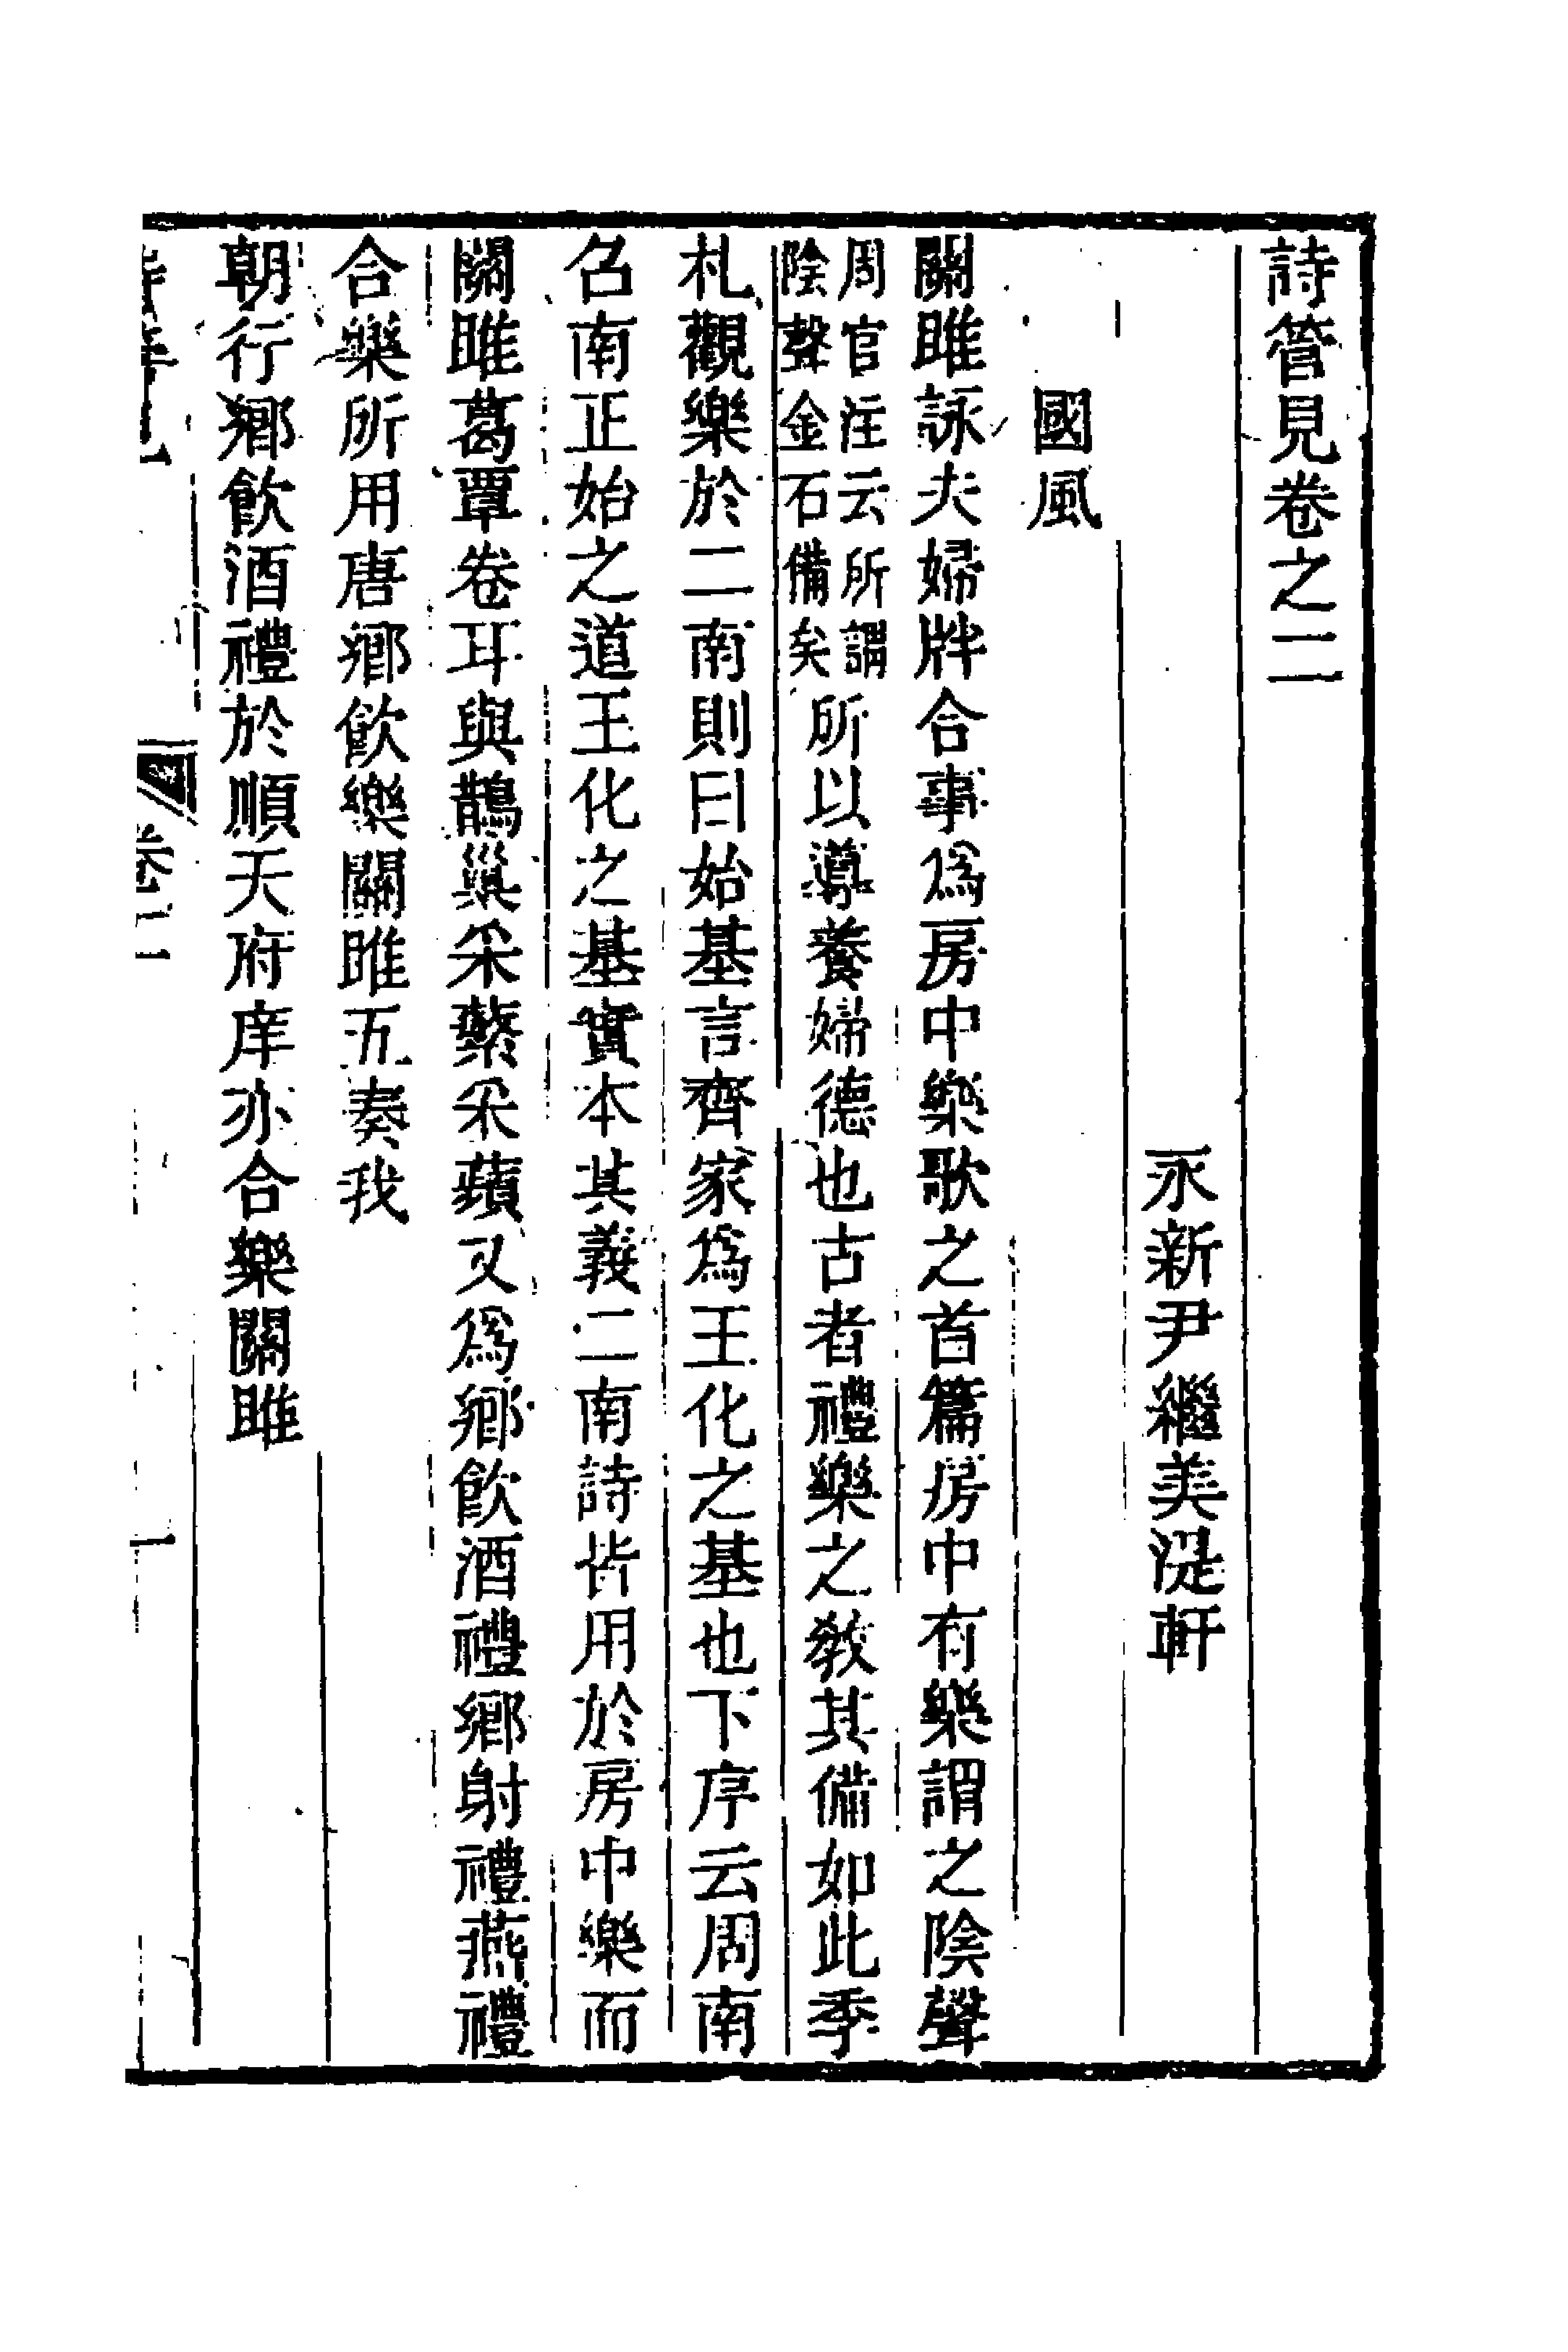 詩管見卷之二
永新尹繼美湜軒
國風
關雎詠夫婦牉合事爲房中樂歌之首篇房中有樂謂之陰聲
周官注云所謂
陰聲金石備矣
所以導養婦德也古者禮樂之敎其備如此季
札觀樂於二南則曰始基言齊家爲王化之基也下序云周南
召南正始之道王化之基實本其義二南詩皆用於房中樂而
關雎葛覃卷耳與鵲巢采蘩采蘋又爲鄉飮酒禮鄉射禮燕禮
合樂所用唐鄉飮樂關雎五奏我
朝行鄉飮酒禮於順天府庠亦合樂關雎
卷二
一